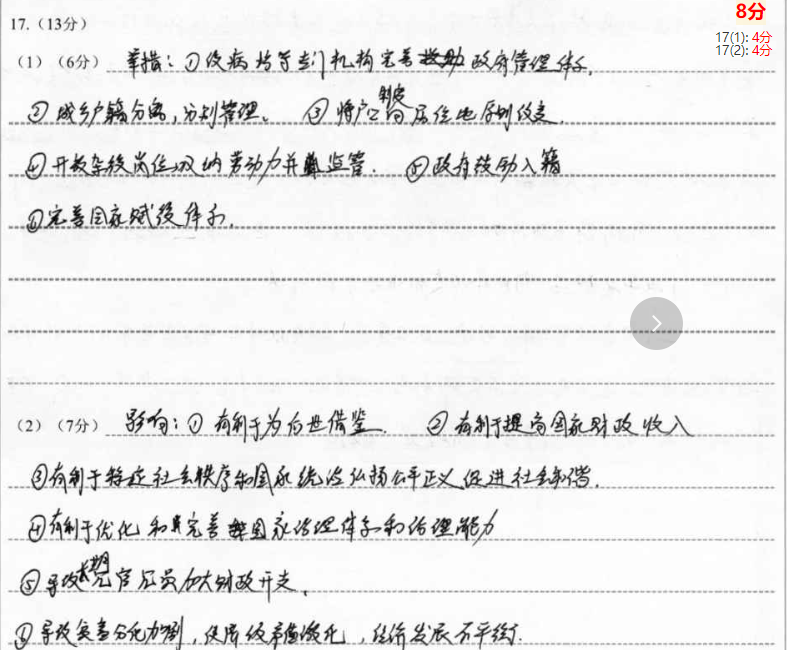 8分
17(1): 4分
17(2): 4分
17.（13分）
（1）（6分） 举措：① 专门机构完善 政府管理体系.
② 城乡户籍分离，分别管理。 ③ 将户口 制定
④ 开放杂役岗位吸纳劳动力并监管. ⑤ 政府鼓励入籍
⑥完善国家赋役体系.
（2）（7分） 影响：① 有利于为后世借鉴. ② 有利于提高国家财政收入
③有利于稳定社会秩序和国家统治弘扬公平正义促进社会和谐.
④有利于优化和完善国家治理体系和治理能力
⑤ 导致长期冗官冗员加大财政开支.
⑥ 导致贫富分化加剧，使阶级矛盾激化，经济发展不平衡.